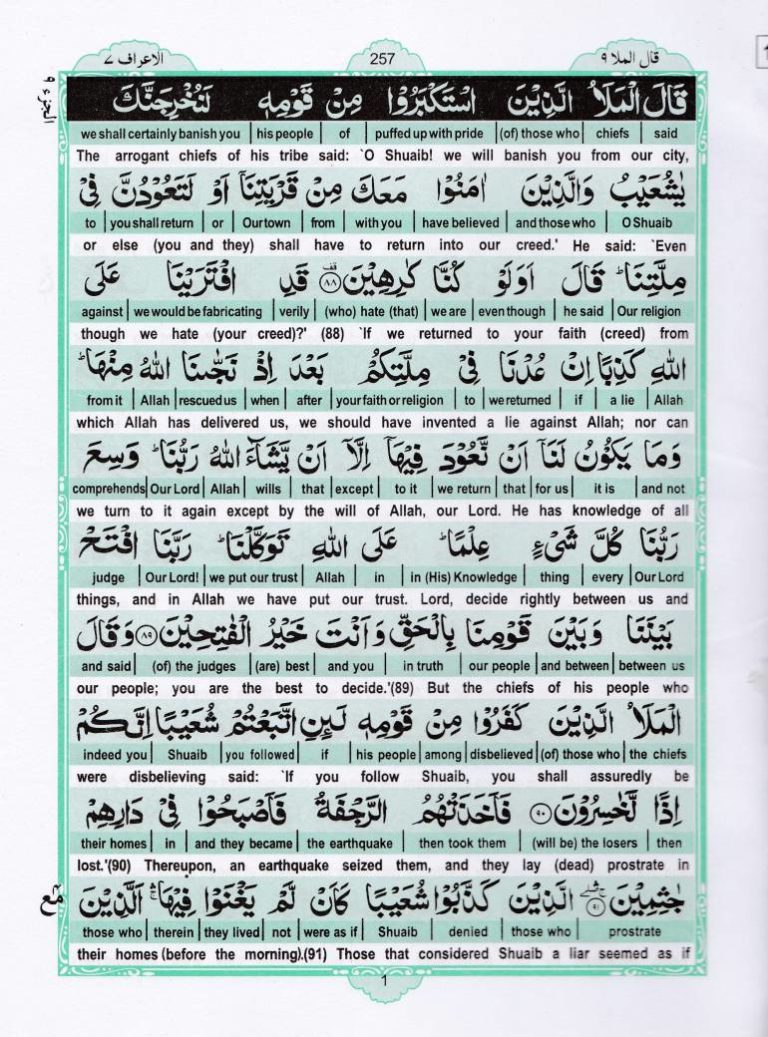 الاعراف ٧
257
قال الملا ٩
الجزء ٩
قَالَ الْمَلَاُ الَّذِيْنَ اسْتَكْبَرُوْا مِنْ قَوْمِهٖ لَنُخْرِجَنَّكَ
said | chiefs | (of) those who | puffed up with pride | of | his people | we shall certainly banish you
The arrogant chiefs of his tribe said: `O Shuaib! we will banish you from our city,
يٰشُعَيْبُ وَالَّذِيْنَ اٰمَنُوْا مَعَكَ مِنْ قَرْيَتِنَاۤ اَوْ لَتَعُوْدُنَّ فِيْ
O Shuaib | and those who | have believed | with you | from | Our town | or | you shall return | to
or else (you and they) shall have to return into our creed.' He said: `Even
مِلَّتِنَاؕ قَالَ اَوَلَوْ كُنَّا كٰرِهِيْنَ ۟۸۸ قَدِ افْتَرَيْنَا عَلَى
Our religion | he said | even though | we are | (who) hate (that) | verily | we would be fabricating | against
though we hate (your creed)?' (88) `If we returned to your faith (creed) from
اللّٰهِ كَذِبًا اِنْ عُدْنَا فِيْ مِلَّتِكُمْ بَعْدَ اِذْ نَجّٰىنَا اللّٰهُ مِنْهَاؕ
Allah | a lie | if | we returned | to | your faith or religion | after | when | rescued us | Allah | from it
which Allah has delivered us, we should have invented a lie against Allah; nor can
وَمَا يَكُوْنُ لَنَاۤ اَنْ نَّعُوْدَ فِيْهَاۤ اِلَّاۤ اَنْ يَّشَآءَ اللّٰهُ رَبُّنَاؕ وَسِعَ
and not | it is | for us | that | we return | to it | except | that | wills | Allah | Our Lord | comprehends
we turn to it again except by the will of Allah, our Lord. He has knowledge of all
رَبُّنَا كُلَّ شَيْءٍ عِلْمًاؕ عَلَى اللّٰهِ تَوَكَّلْنَاؕ رَبَّنَا افْتَحْ
Our Lord | every | thing | in (His) Knowledge | in | Allah | we put our trust | Our Lord! | judge
things, and in Allah we have put our trust. Lord, decide rightly between us and
بَيْنَنَا وَبَيْنَ قَوْمِنَا بِالْحَقِّ وَاَنْتَ خَيْرُ الْفٰتِحِيْنَ ۟۸۹ وَقَالَ
between us | and between | our people | in truth | and you | (are) best | (of) the judges | and said
our people; you are the best to decide.'(89) But the chiefs of his people who
الْمَلَاُ الَّذِيْنَ كَفَرُوْا مِنْ قَوْمِهٖ لَىِٕنِ اتَّبَعْتُمْ شُعَيْبًا اِنَّكُمْ
the chiefs | (of) those who | disbelieved | among | his people | if | you followed | Shuaib | indeed you
were disbelieving said: `If you follow Shuaib, you shall assuredly be
اِذًا لَّخٰسِرُوْنَ ۟۹۰ فَاَخَذَتْهُمُ الرَّجْفَةُ فَاَصْبَحُوْا فِيْ دَارِهِمْ
then | (will be) the losers | then took them | the earthquake | and they became | in | their homes
lost.'(90) Thereupon, an earthquake seized them, and they lay (dead) prostrate in
جٰثِمِيْنَ ۟۹۱ الَّذِيْنَ كَذَّبُوْا شُعَيْبًا كَاَنْ لَّمْ يَغْنَوْا فِيْهَا اَلَّذِيْنَ
prostrate | those who | denied | Shuaib | were as if | not | they lived | therein | those who
their homes (before the morning).(91) Those that considered Shuaib a liar seemed as if
مع
1